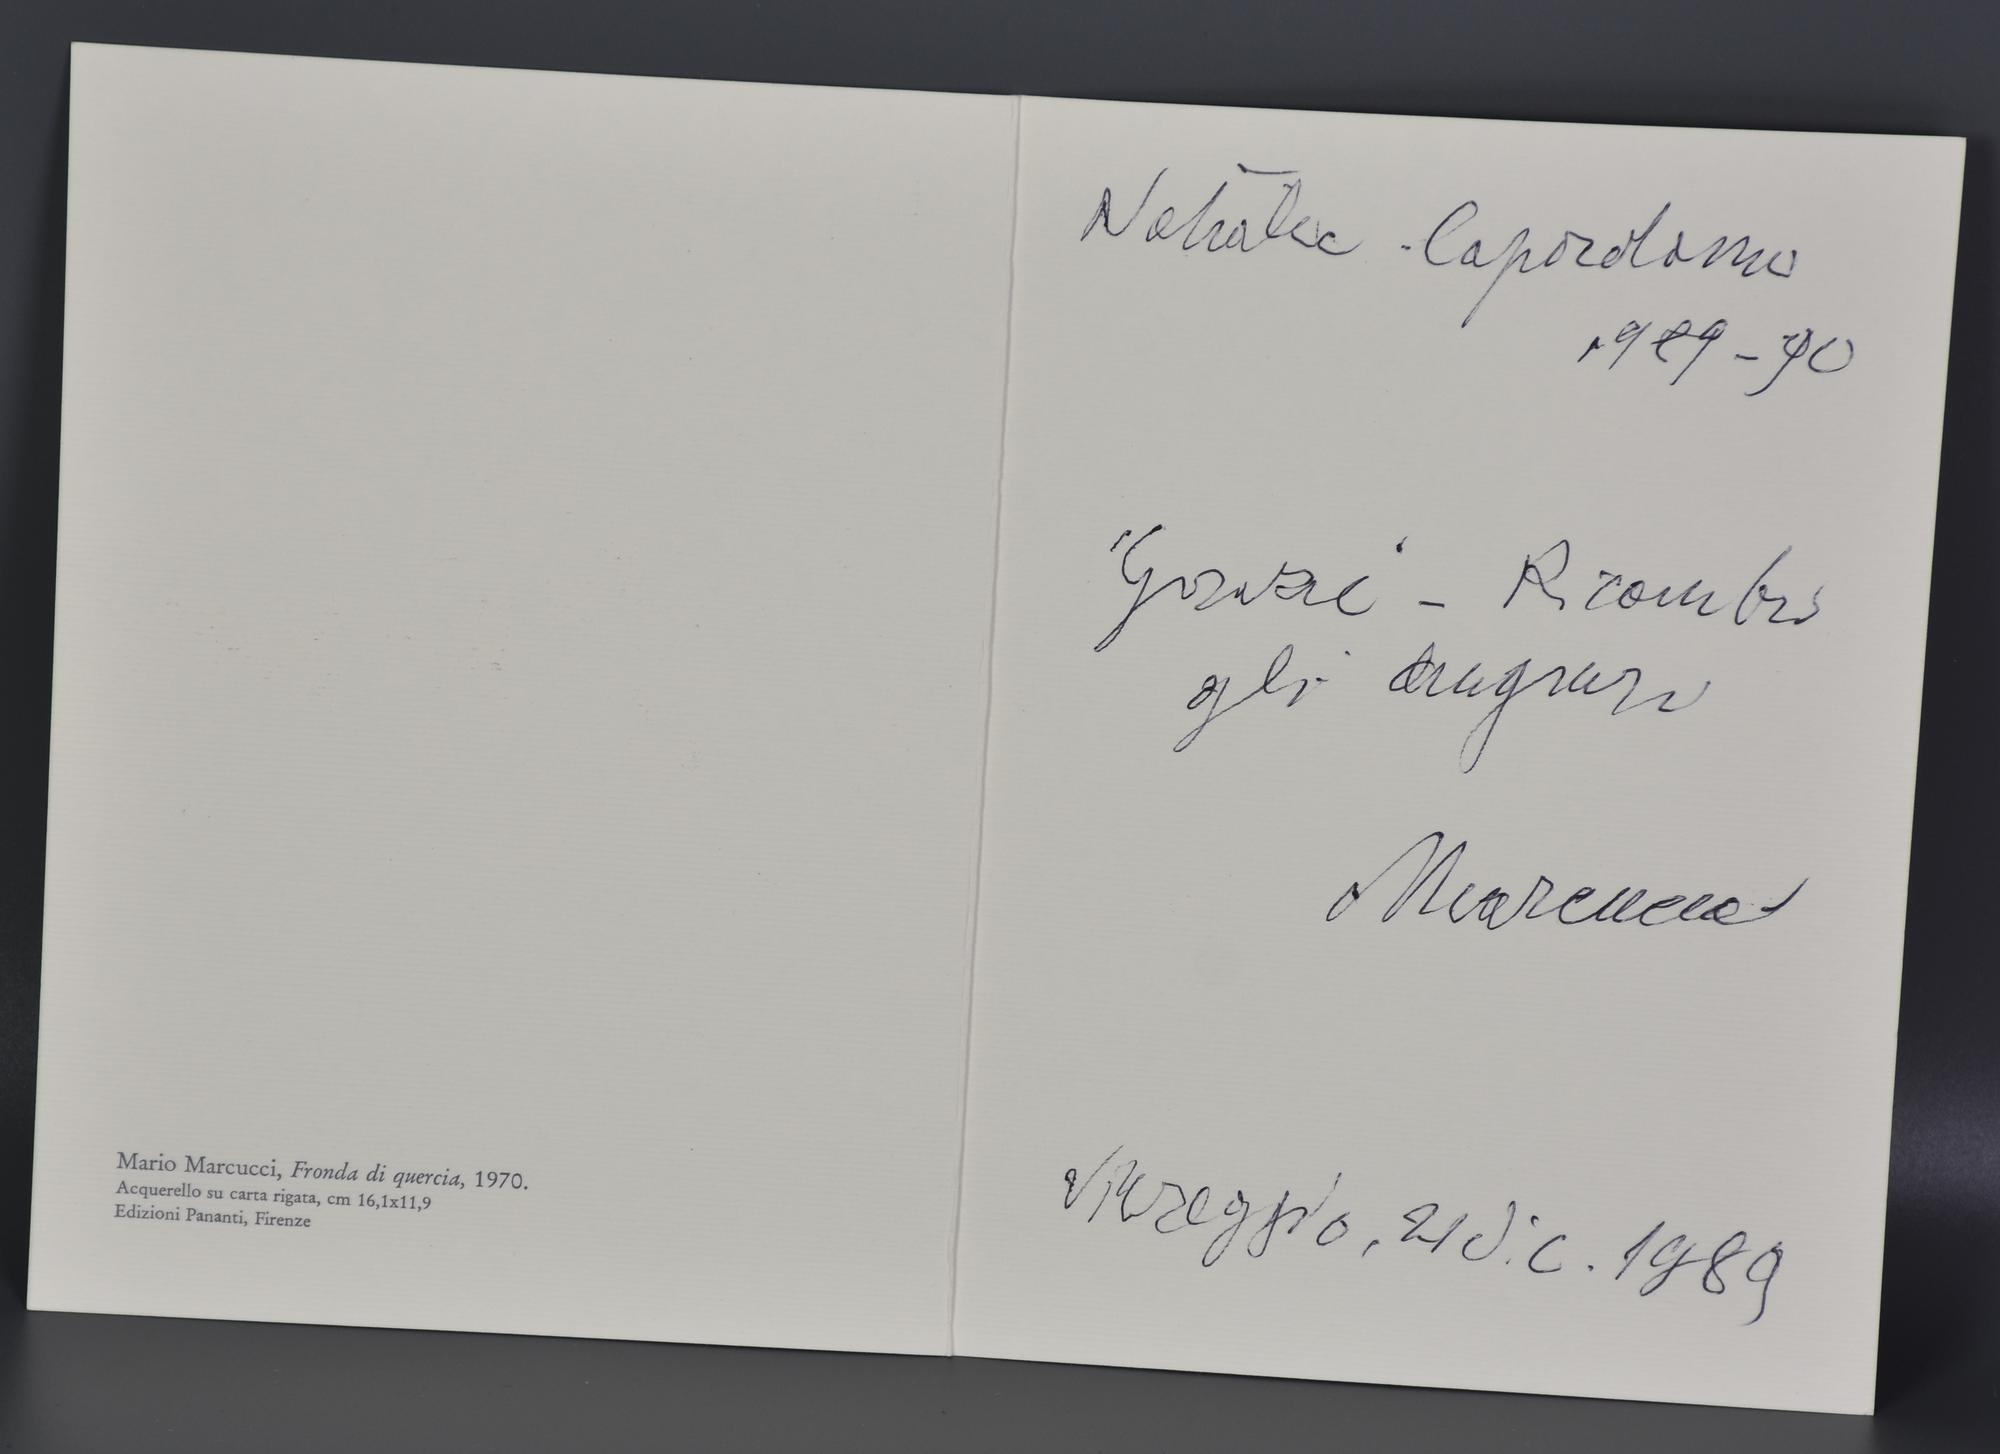 Mario Marcucci, Fronda di quercia, 1970.
Acquerello su carta rigata, cm 16,1x11,9
Edizioni Pananti, Firenze
Natale - Capodanno
1989-90
"Grazie" - Ricambio
gli auguri
Marcucci
Viareggio, 21 dic. 1989